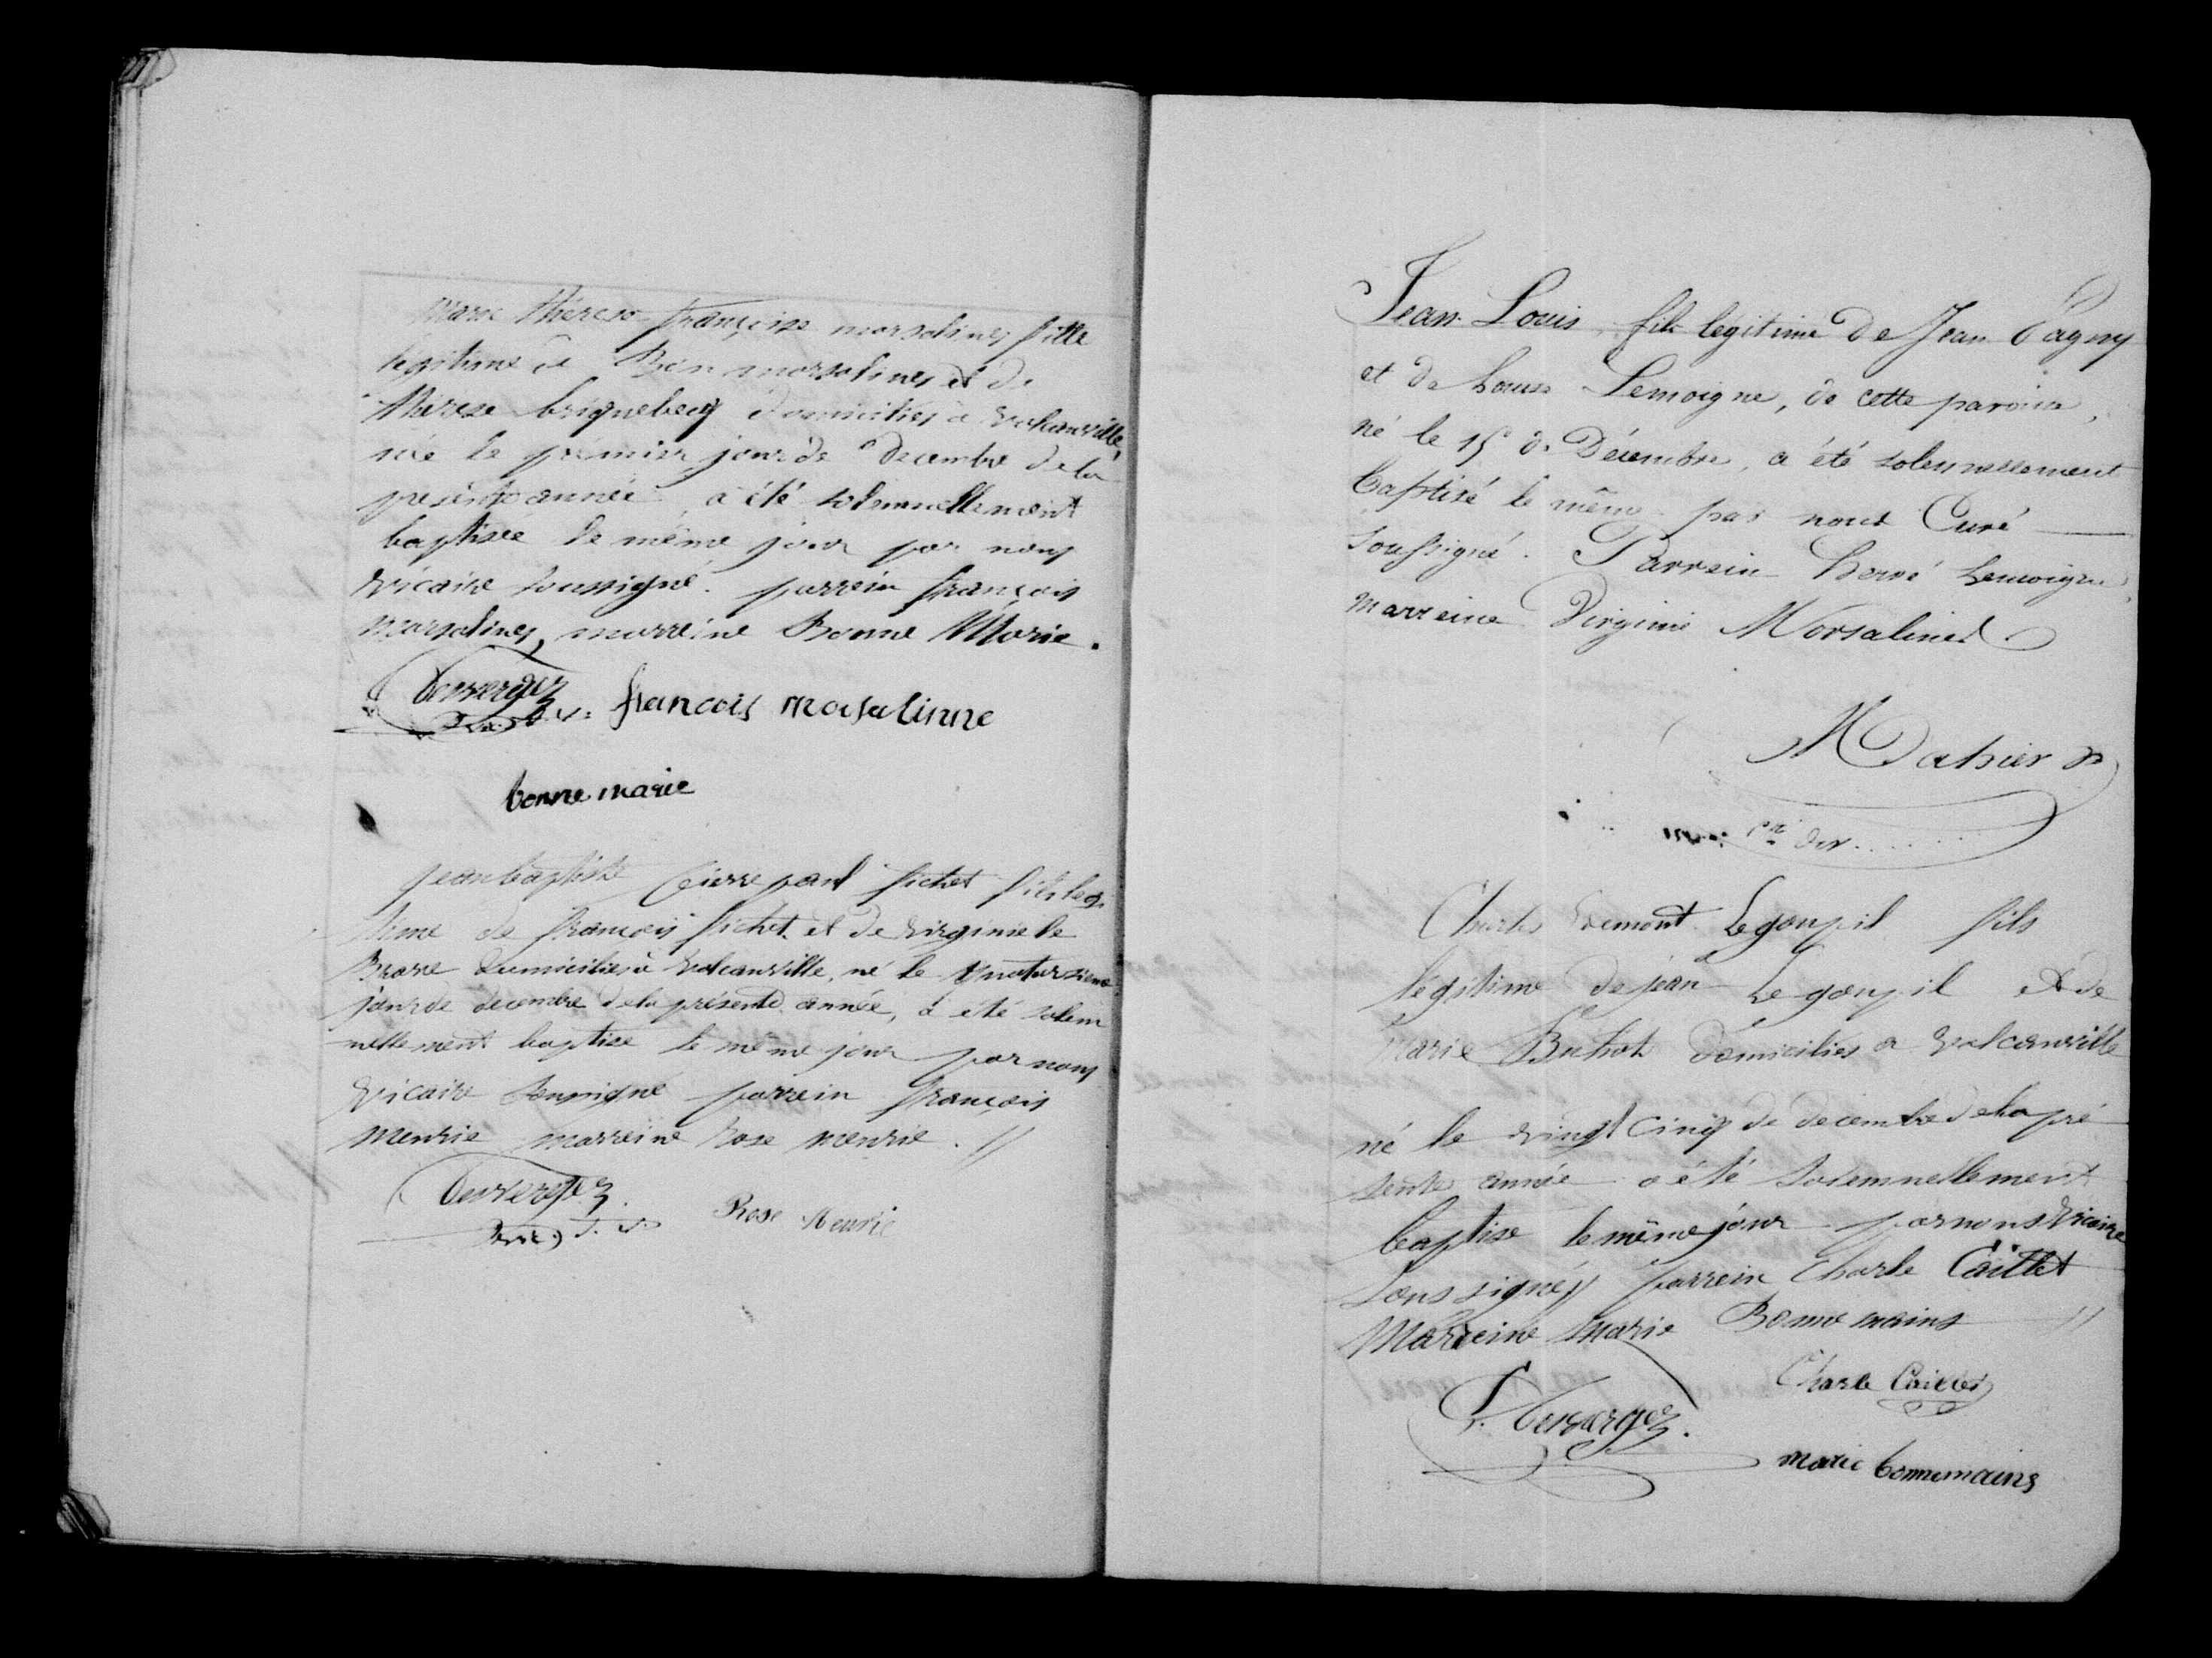 Marie Thérese françoise morsalines fille
legitime de Bon morsalines et de
thérese briquebecq domiciliés a Valcanville,
née le premier jour de decembre de la
presente année a été solemnellement
baptisée le même jour par nous
vicaire soussigné. parrein françois
morsalines, marreine Bonne Marie.
francois morsalinne
bonne marie
jean baptiste pierre paul fichet fils legi
time de françois fichet et de virginie le
Brore domiciliés à valcanville, né le quatorzieme
jour de decembre de la présente année, a été solem
nellement baptise le même jour par nous
vicaire soussigné parrein françois
menrie marreine Rose menrie . //
Rose Menrie
Jean Louis, fils légitime de Jean Pagny
et de Louise Lemoigne, de cette paroisse,
né le 15e de Décembre, a été solennellement
baptisé le même par nous Curé
soussigné. Parrein Hervé Lemoigne,
marreine Virginie Morsalines
Mahier
Charles Legoupil fils
légitime de jean Le goupil et de
Marie Buhot domiciliés a valcanville
né le vingt cinq de decembre de la pré
sente année a été solemnellement
baptise le même jour par nous vicaire
soussigné parrein Charle Caillet
Marreine Marie Bonnemains //
Charle Caillet
marie bonnemains